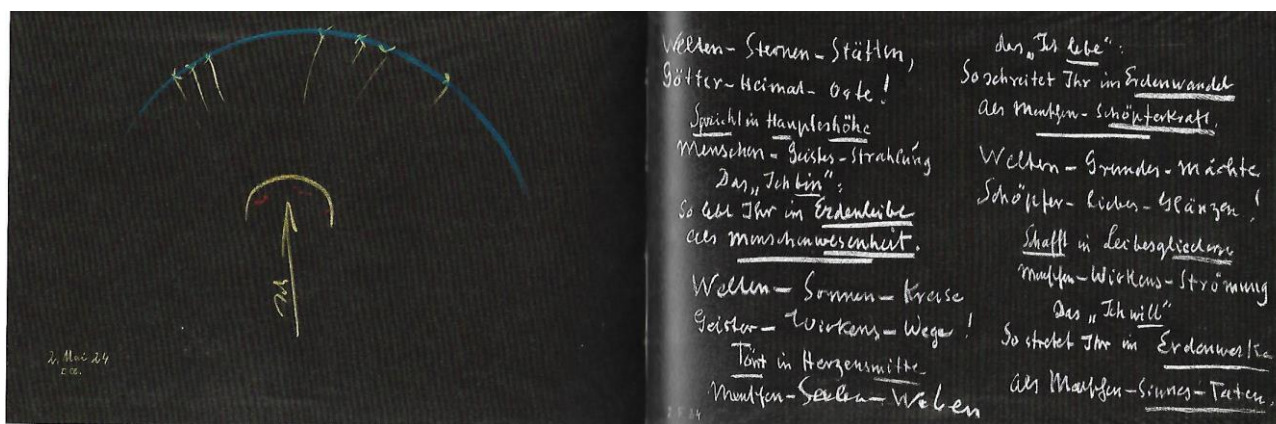 Ich
2. Mai 24
Welten - Sternen - Stätten,
Götter - Heimat - Orte!
Spricht in Haupteshöhe
Menschen - Geistes - Strahlung
Das „Ich bin":
So lebt Ihr im Erdenleibe
als Menschenwesenheit.
Welten - Sonnen - Kreise
Geister - Wirkens - Wege!
Tönt in Herzensmitte
Menschen - Seelen - Weben
2.5.24
das „Ich lebe":
So schreitet Ihr im Erdenwandel
als Menschen - Schöpferkraft.
Welten - Grundes - Mächte
Schöpfer - Liebes - Glänzen!
Schafft in Leibesgliedern
Menschen - Wirkens - Strömung
Das „Ich will"
So strebet Ihr im Erdenwerke
als Menschen - Sinnes - Taten.